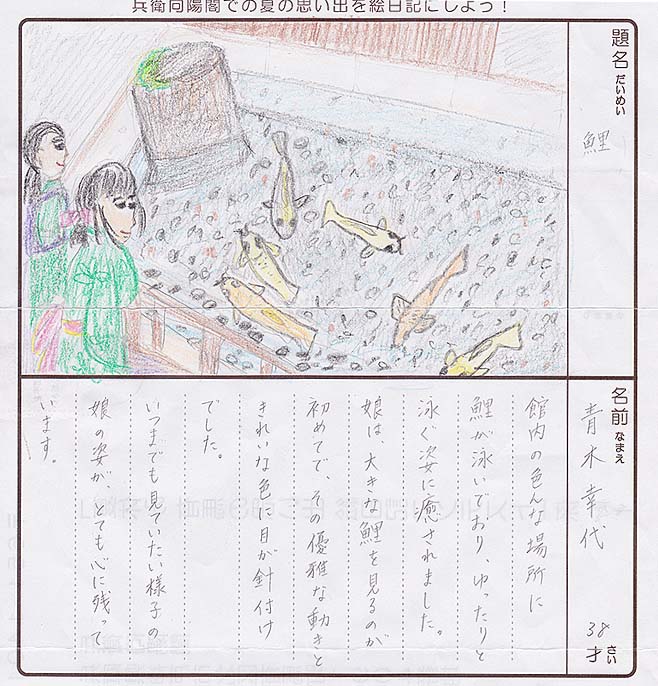 兵衛向陽閣での夏の思い出を絵日記にしよう!
題名 だいめい
鯉
名前 なまえ
青木幸代
38才 さい
館内の色んな場所に
鯉が泳いでおり、ゆったりと
泳ぐ姿に癒されました。
娘は、大きな鯉を見るのが
初めてで、その優雅な動きと
きれいな色に目が針付け
でした。
いつまでも見ていたい様子の
娘の姿が、とても心に残って
います。